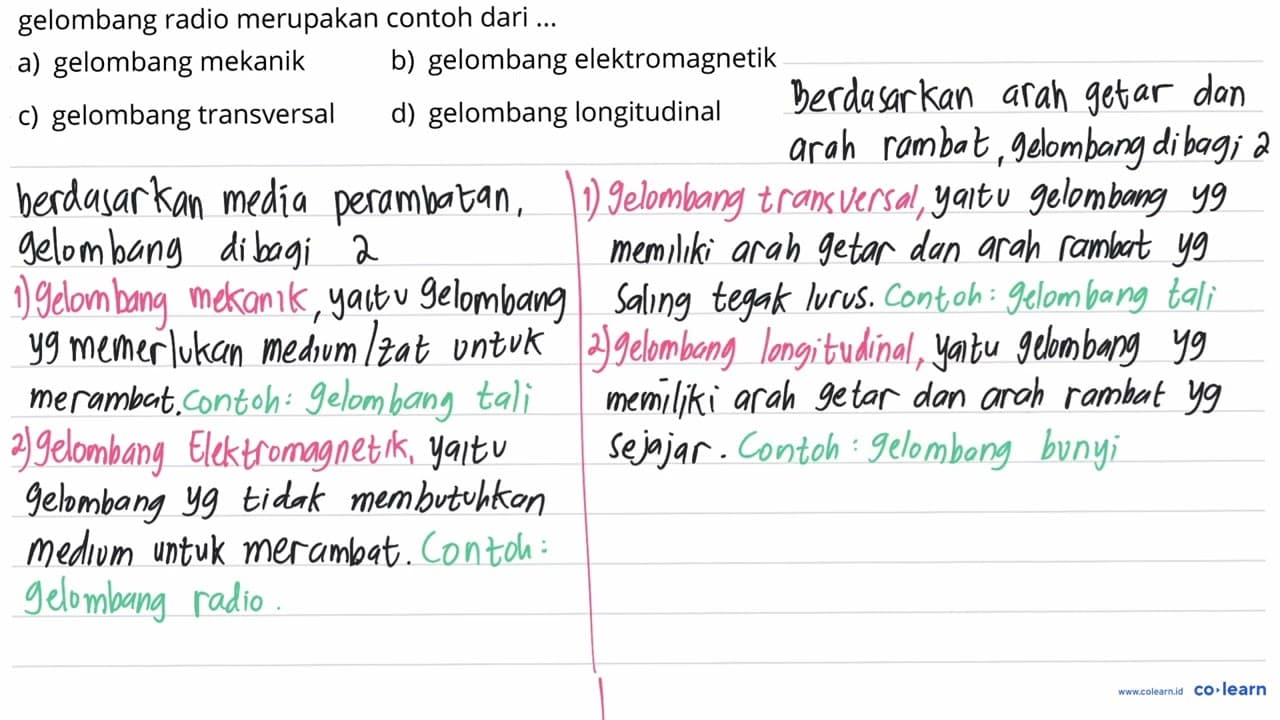 gelombang radio merupakan contoh dari ...
a) gelombang mekanik b) gelombang elektromagnetik
c) gelombang transversal d) gelombang longitudinal
berdasarkan media perambatan,
gelombang dibagi 2
1) gelombang mekanik, yaitu gelombang
yg memerlukan medium/zat untuk
merambat. Contoh: gelombang tali
2) gelombang Elektromagnetik, yaitu
gelombang yg tidak membutuhkan
medium untuk merambat. Contoh:
gelombang radio.
Berdasarkan arah getar dan
arah rambat, gelombang dibagi 2
1) gelombang transversal, yaitu gelombang yg
memiliki arah getar dan arah rambat yg
Saling tegak lurus. Contoh: gelombang tali
2) gelombang longitudinal, yaitu gelombang yg
memiliki arah getar dan arah rambat yg
sejajar. Contoh: gelombang bunyi
www.colearn.id co·learn